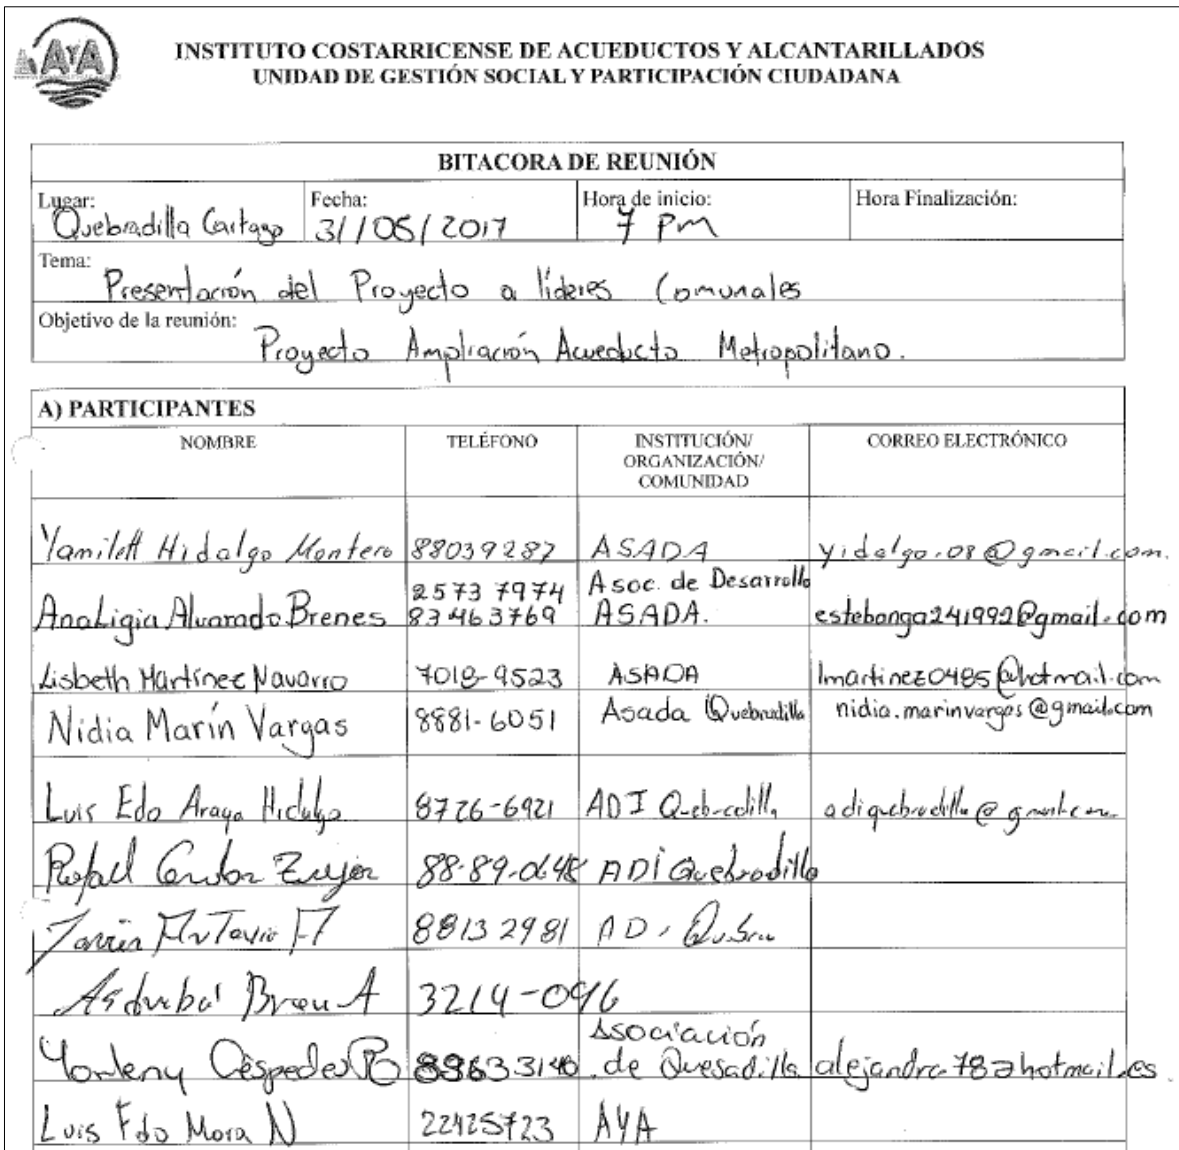 AyA
INSTITUTO COSTARRICENSE DE ACUEDUCTOS Y ALCANTARILLADOS
UNIDAD DE GESTIÓN SOCIAL Y PARTICIPACIÓN CIUDADANA
BITACORA DE REUNIÓN
Lugar: Quebradilla Cartago
Fecha: 31/05/2017
Hora de inicio: 7 pm
Hora Finalización:
Tema: Presentación del Proyecto a líderes Comunales
Objetivo de la reunión: Proyecto Ampliación Acueducto Metropolitano.
A) PARTICIPANTES
NOMBRE TELÉFONO INSTITUCIÓN/ CORREO ELECTRÓNICO
ORGANIZACIÓN/
COMUNIDAD
Yamilett Hidalgo Montero 88039287 ASADA yidalgo.08@gmail.com.
2573 7974 Asoc. de Desarrollo
Ana Ligia Alvarado Brenes 83463769 ASADA. estebanga241992@gmail.com
Lisbeth Martínez Navarro 7018-9523 ASADA lmartinez0485@hotmail.com
Nidia Marín Vargas 8881-6051 Asada Quebradilla nidia.marinvargas@gmail.com
Luis Edo Araya Hidalgo 8726-6921 ADI Quebradilla adiquebradilla@gmail.com
Rafael 88-89-0648 ADI Quebradilla
8813 2981 AD.
Asdrubal 3214-0946
Asociación
Yorleny Céspedes 89633140. de Quesadilla alejandra78@hotmail.es
Luis Fdo Mora N 22425723 AYA